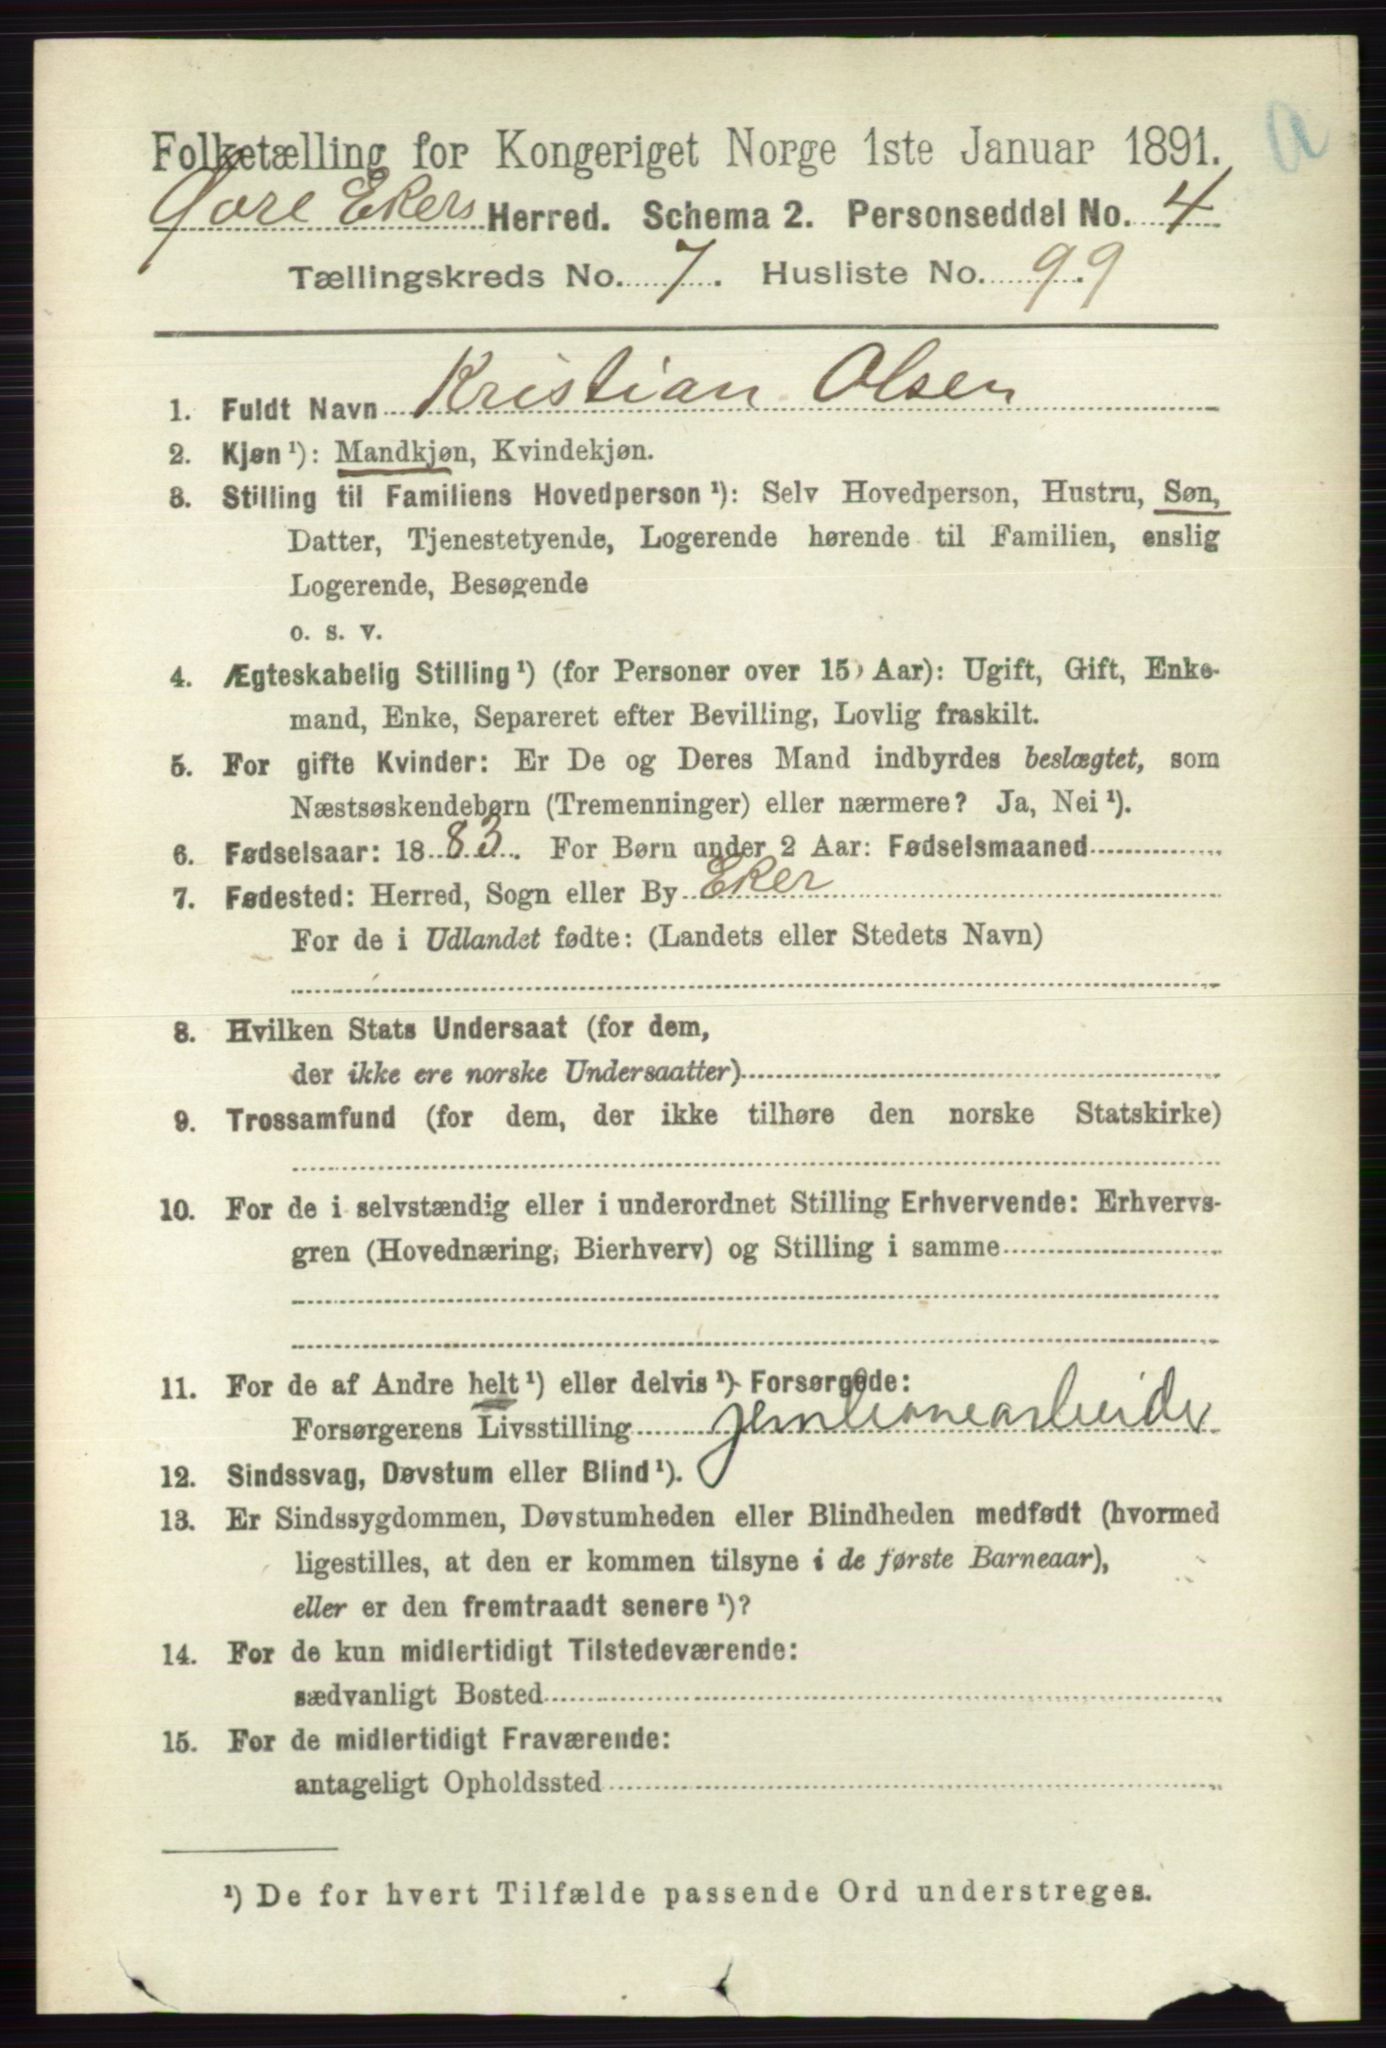 Folketælling for Kongeriget Norge 1ste Januar 1891.
a
Øvre Ekers Herred. Schema 2. Personseddel No. 4
Tællingskreds No. 7. Husliste No. 99
1. Fuldt Navn Kristian Olsen
2. Kjøn ¹): Mandkjøn, Kvindekjøn.
3. Stilling til Familiens Hovedperson ¹): Selv Hovedperson, Hustru, Søn,
Datter, Tjenestetyende, Logerende hørende til Familien, enslig
Logerende, Besøgende
o. s. v.
4. Ægteskabelig Stilling ¹) (for Personer over 15 Aar): Ugift, Gift, Enke-
mand, Enke, Separeret efter Bevilling, Lovlig fraskilt.
5. For gifte Kvinder: Er De og Deres Mand indbyrdes beslægtet, som
Næstsøskendebørn (Tremenninger) eller nærmere? Ja, Nei ¹).
6. Fødselsaar: 1883. For Børn under 2 Aar: Fødselsmaaned
7. Fødested: Herred, Sogn eller By Eker
For de i Udlandet fødte: (Landets eller Stedets Navn)
8. Hvilken Stats Undersaat (for dem,
der ikke ere norske Undersaatter)
9. Trossamfund (for dem, der ikke tilhøre den norske Statskirke)
10. For de i selvstændig eller i underordnet Stilling Erhvervende: Erhvervs-
gren (Hovednæring, Bierhverv) og Stilling i samme
11. For de af Andre helt ¹) eller delvis ¹) Forsørgede:
Forsørgerens Livsstilling
12. Sindssvag, Døvstum eller Blind ¹).
13. Er Sindssygdommen, Døvstumheden eller Blindheden medfødt (hvormed
ligestilles, at den er kommen tilsyne i de første Barneaar),
eller er den fremtraadt senere ¹)?
14. For de kun midlertidigt Tilstedeværende:
sædvanligt Bosted
15. For de midlertidigt Fraværende:
antageligt Opholdssted
¹) De for hvert Tilfælde passende Ord understreges.